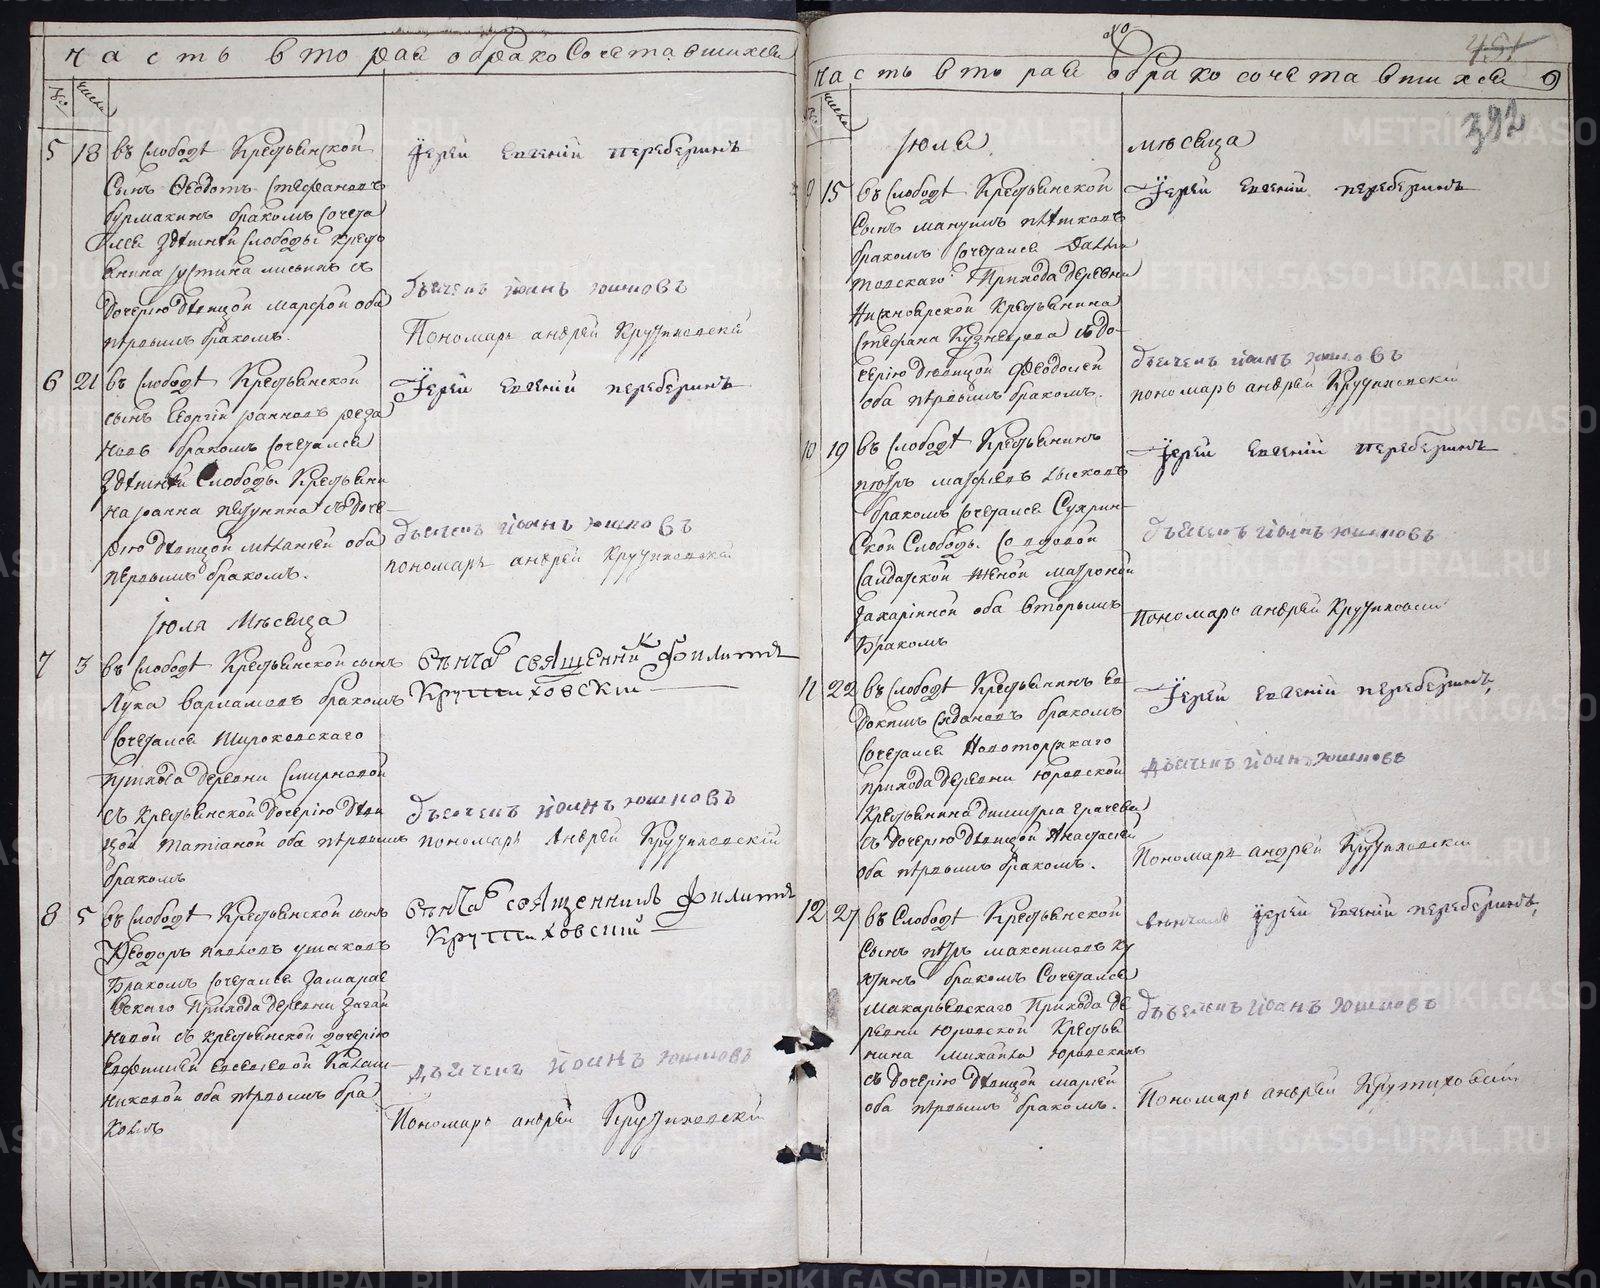 часть вторая обракосочетавшихся
№
числа
5 18 въ слободѣ Крестьянской
сынъ Ѳеодотъ Стефановъ
бурмакинъ бракомъ сочета
лся здѣшнѣй слободы кресть
янина
дочерию дѣвицой марѳой оба
пѣрвымъ бракомъ.
Їерей Евгеній перебѣринъ
дьячекъ іоанъ юшковъ
Пономарь андрей Крутиховскій
6 21 въ слободѣ Крестьянской
сынъ Георгій
бракомъ сочетался
здѣшнѣй Слободы Крестьяни
на съ доче
рью дѣвицой оба
пѣрвымъ бракомъ.
Їерей Евгеній перебѣринъ
дьячекъ іоанъ юшковъ
пономарь андрей Крутиховскій
іюля мѣсяца
7 3 въ слободѣ Крестьянской сынъ
Лука варламовъ бракомъ
сочетался Широковскаго
прихода деревни Смирновой
съ крестьянской дочерію дѣви
цой татіаной оба пѣрвымъ
бракомъ
вѣнчалъ свящѣнникъ Филиппъ
Крутиховскій
дьячекъ іоанъ юшковъ
пономарь Андрей Крутиховскій
8 5 въ слободѣ Крестьянской сынъ
Ѳеодоръ ушаковъ
Бракомъ сочетался Замарае
вскаго Прихода деревни
съ крестьянской дочерію
оба пѣрвымъ бра
комъ
вѣнчалъ свящѣнникъ Филиппъ
Крутиховскій
дьячекъ іоанъ юшковъ
Пономарь андрей Крутиховскій
451
часть вторая обракосочетавшихся 9
392
числа
іюля мѣсяца
9 15 въ слободѣ Крестьянской
сынъ
бракомъ сочетался Далма
товскаго Прихода деревни
Нижноярской Крестьянина
Стефана Кузнецова съ до
черію дѣвицой Ѳеодосіей
оба пѣрвымъ бракомъ.
Їерей Евгеній перебѣринъ
дьячекъ іоанъ юшковъ
пономарь андрей Крутиховскій
10 19 въ слободѣ Крестьянинъ
пѣтръ матфѣевъ
бракомъ сочетался Сухрин
ской Слободы со вдовой
салдатской женой матроной
Захаріиной оба вторымъ
Бракомъ
Їерей Евгеній перебѣринъ
дьячекъ іоанъ юшковъ
Пономарь андрей Крутиховскій
11 22 въ слободѣ Крестьянинъ Ев
докимъ бракомъ
сочетался Новоторжкаго
прихода деревни Юровской
Крестьянина димитрія грачева
съ дочерію дѣвицой Анастасіей
оба пѣрвымъ бракомъ.
Їерей Евгеній перебѣринъ
дьячекъ іоанъ юшковъ
Пономарь андрей Крутиховскій
12 27 въ Слободѣ Крестьянской
сынъ пѣтръ максимовъ ку
бракомъ Сочетался
макарьевскаго Прихода де
ревни Юровской Крестья
нина михаила Юровскихъ
съ дочерію дѣвицой маріей
оба пѣрвымъ бракомъ.
вѣнчалъ Їерей Евгеній перебѣринъ
дьячекъ іоанъ юшковъ
Пономарь андрей Крутиховскій